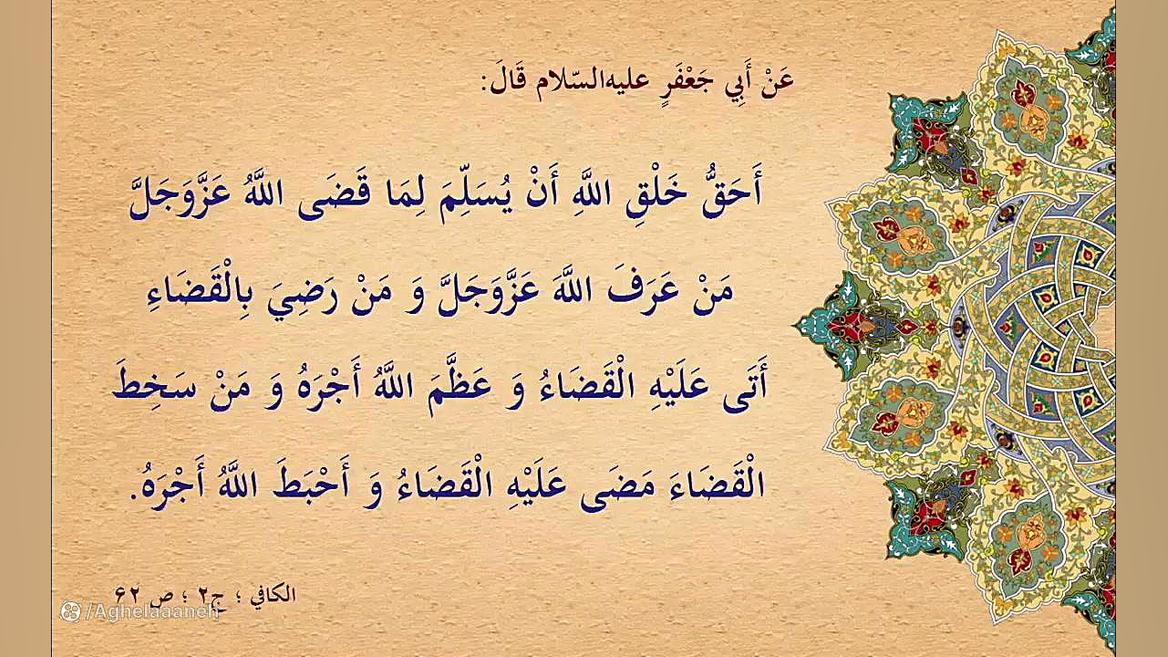 عَنْ أَبِي جَعْفَرٍ علیه‌السّلام قَالَ:
أَحَقُّ خَلْقِ اللَّهِ أَنْ يُسَلِّمَ لِمَا قَضَى اللَّهُ عَزَّوَجَلَّ
مَنْ عَرَفَ اللَّهَ عَزَّوَجَلَّ وَ مَنْ رَضِيَ بِالْقَضَاءِ
أَتَى عَلَيْهِ الْقَضَاءُ وَ عَظَّمَ اللَّهُ أَجْرَهُ وَ مَنْ سَخِطَ
الْقَضَاءَ مَضَى عَلَيْهِ الْقَضَاءُ وَ أَحْبَطَ اللَّهُ أَجْرَهُ.
الكافي ؛ ج۲ ؛ ص ۶۲
/Aghelaaaneh